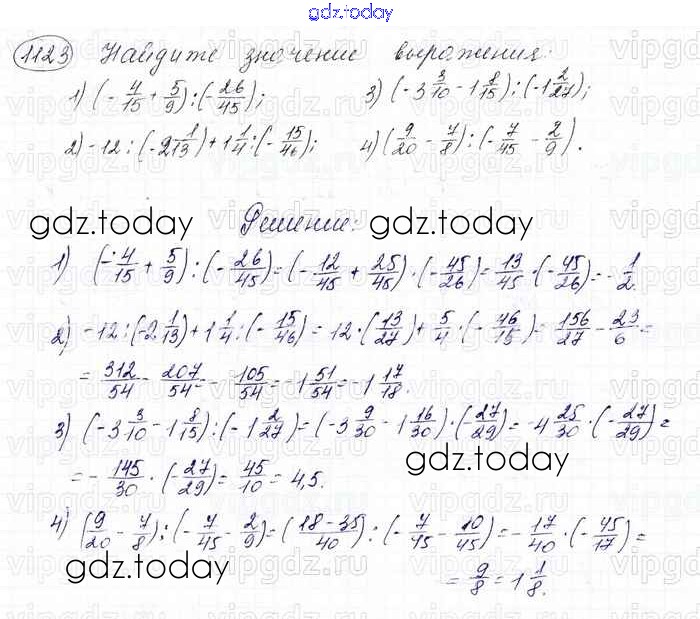 gdz.today
1123 Найдите значение выражения:
1) (- 4/15 + 5/9) : (- 26/45); 3) (-3 3/10 - 1 8/15) : (-1 2/27);
2) -12 : (-2 1/13) + 1 1/4 : (- 15/46); 4) (9/20 - 7/8) : (- 7/45 - 2/9).
gdz.today Решение: gdz.today
1) (- 4/15 + 5/9) : (- 26/45) = (- 12/45 + 25/45) · (- 45/26) = 13/45 · (- 45/26) = - 1/2.
2) -12 : (-2 1/13) + 1 1/4 : (- 15/46) = 12 · (13/27) + 5/4 · (- 46/15) = 156/27 - 23/6 =
= 312/54 - 207/54 = - 105/54 = -1 51/54 = -1 17/18.
3) (-3 3/10 - 1 8/15) : (-1 2/27) = (-3 9/30 - 1 16/30) · (- 27/29) = -4 25/30 · (- 27/29) =
= - 145/30 · (- 27/29) = 45/10 = 4,5. gdz.today
4) (9/20 - 7/8) : (- 7/45 - 2/9) = (18-35/40) : (- 7/45 - 10/45) = - 17/40 · (- 45/17) =
gdz.today = 9/8 = 1 1/8.